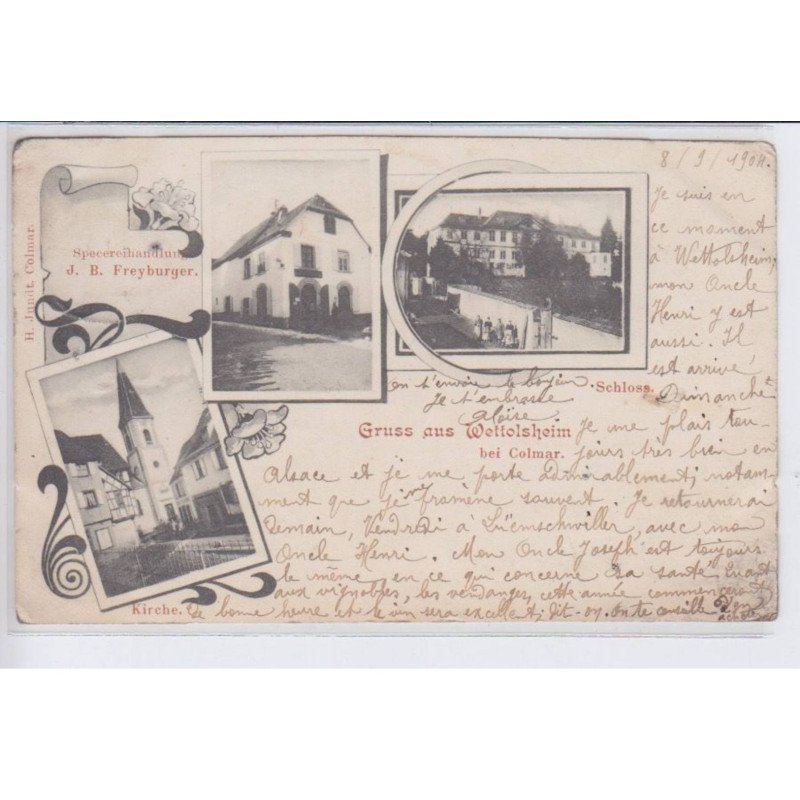 8/9/1904.
H. Jundt. Colmar.
Specereihandlung
J. B. Freyburger.
Schloss.
Gruss aus Wettolsheim
bei Colmar.
Kirche.
Je suis en
ce moment
à Wettolsheim,
mon Oncle
Henri y est
aussi. Il
est arrivé
Dimanche.
Je me plais tou-
jours très bien en
Alsace et je me porte admirablement, notam-
ment que je me promène souvent. Je retournerai
demain, Vendredi à Lümschwiller, avec mon
Oncle Henri. Mon Oncle Joseph est toujours
le même en ce qui concerne sa santé. Quant
aux vignobles, les vendanges, cette année commenceront
de bonne heure et le vin sera excellent, dit-on. On te conseille d'en
On t'envoie le bonjour.
Je t'embrasse
Aloïse.